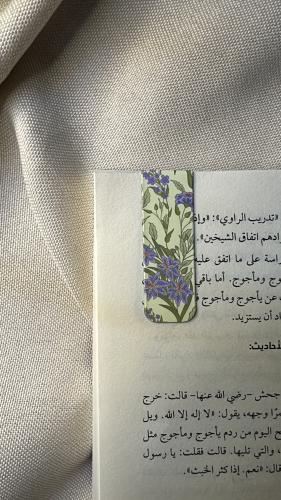 «تدريب الراوي»: «وإذ
رادهم اتفاق الشيخين».
راسة على ما اتفق عليه
وج ومأجوج. أما باقي
ت عن يأجوج ومأجوج
اد أن يستزيد.
لأحاديث:
جحش -رضي الله عنها- قالت: خرج
مرًا وجهه، يقول: «لا إله إلا الله. ويل
ح اليوم من ردم يأجوج ومأجوج مثل
، والتي تليها. قالت فقلت: يا رسول
قال: «نعم. إذا كثر الخبث».